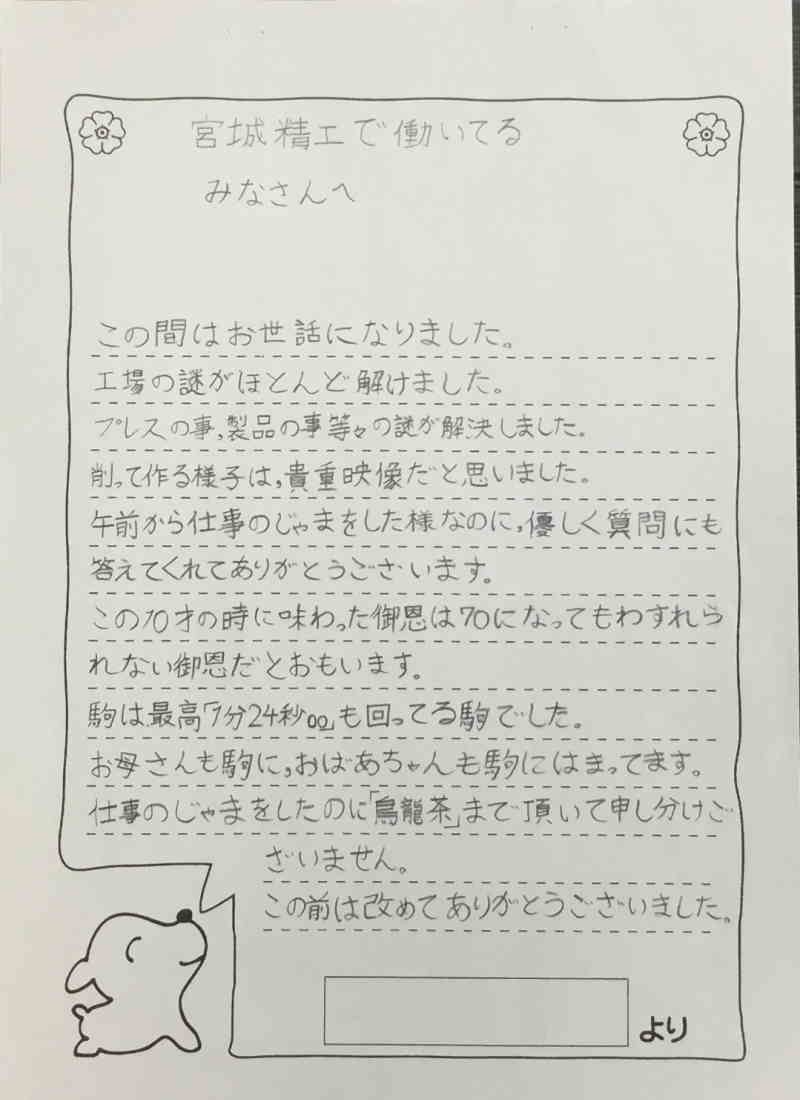 宮城精工で働いてる
みなさんへ
この間はお世話になりました。
工場の謎がほとんど解けました。
プレスの事,製品の事等々の謎が解決しました。
削って作る様子は,貴重映像だと思いました。
午前から仕事のじゃまをした様なのに,優しく質問にも
答えてくれてありがとうございます。
この10才の時に味わった御恩は70になってもわすれら
れない御恩だとおもいます。
駒は最高「7分24秒00」も回ってる駒でした。
お母さんも駒に,おばあちゃんも駒にはまってます。
仕事のじゃまをしたのに「烏龍茶」まで頂いて申し分けご
ざいません。
この前は改めてありがとうございました。
より